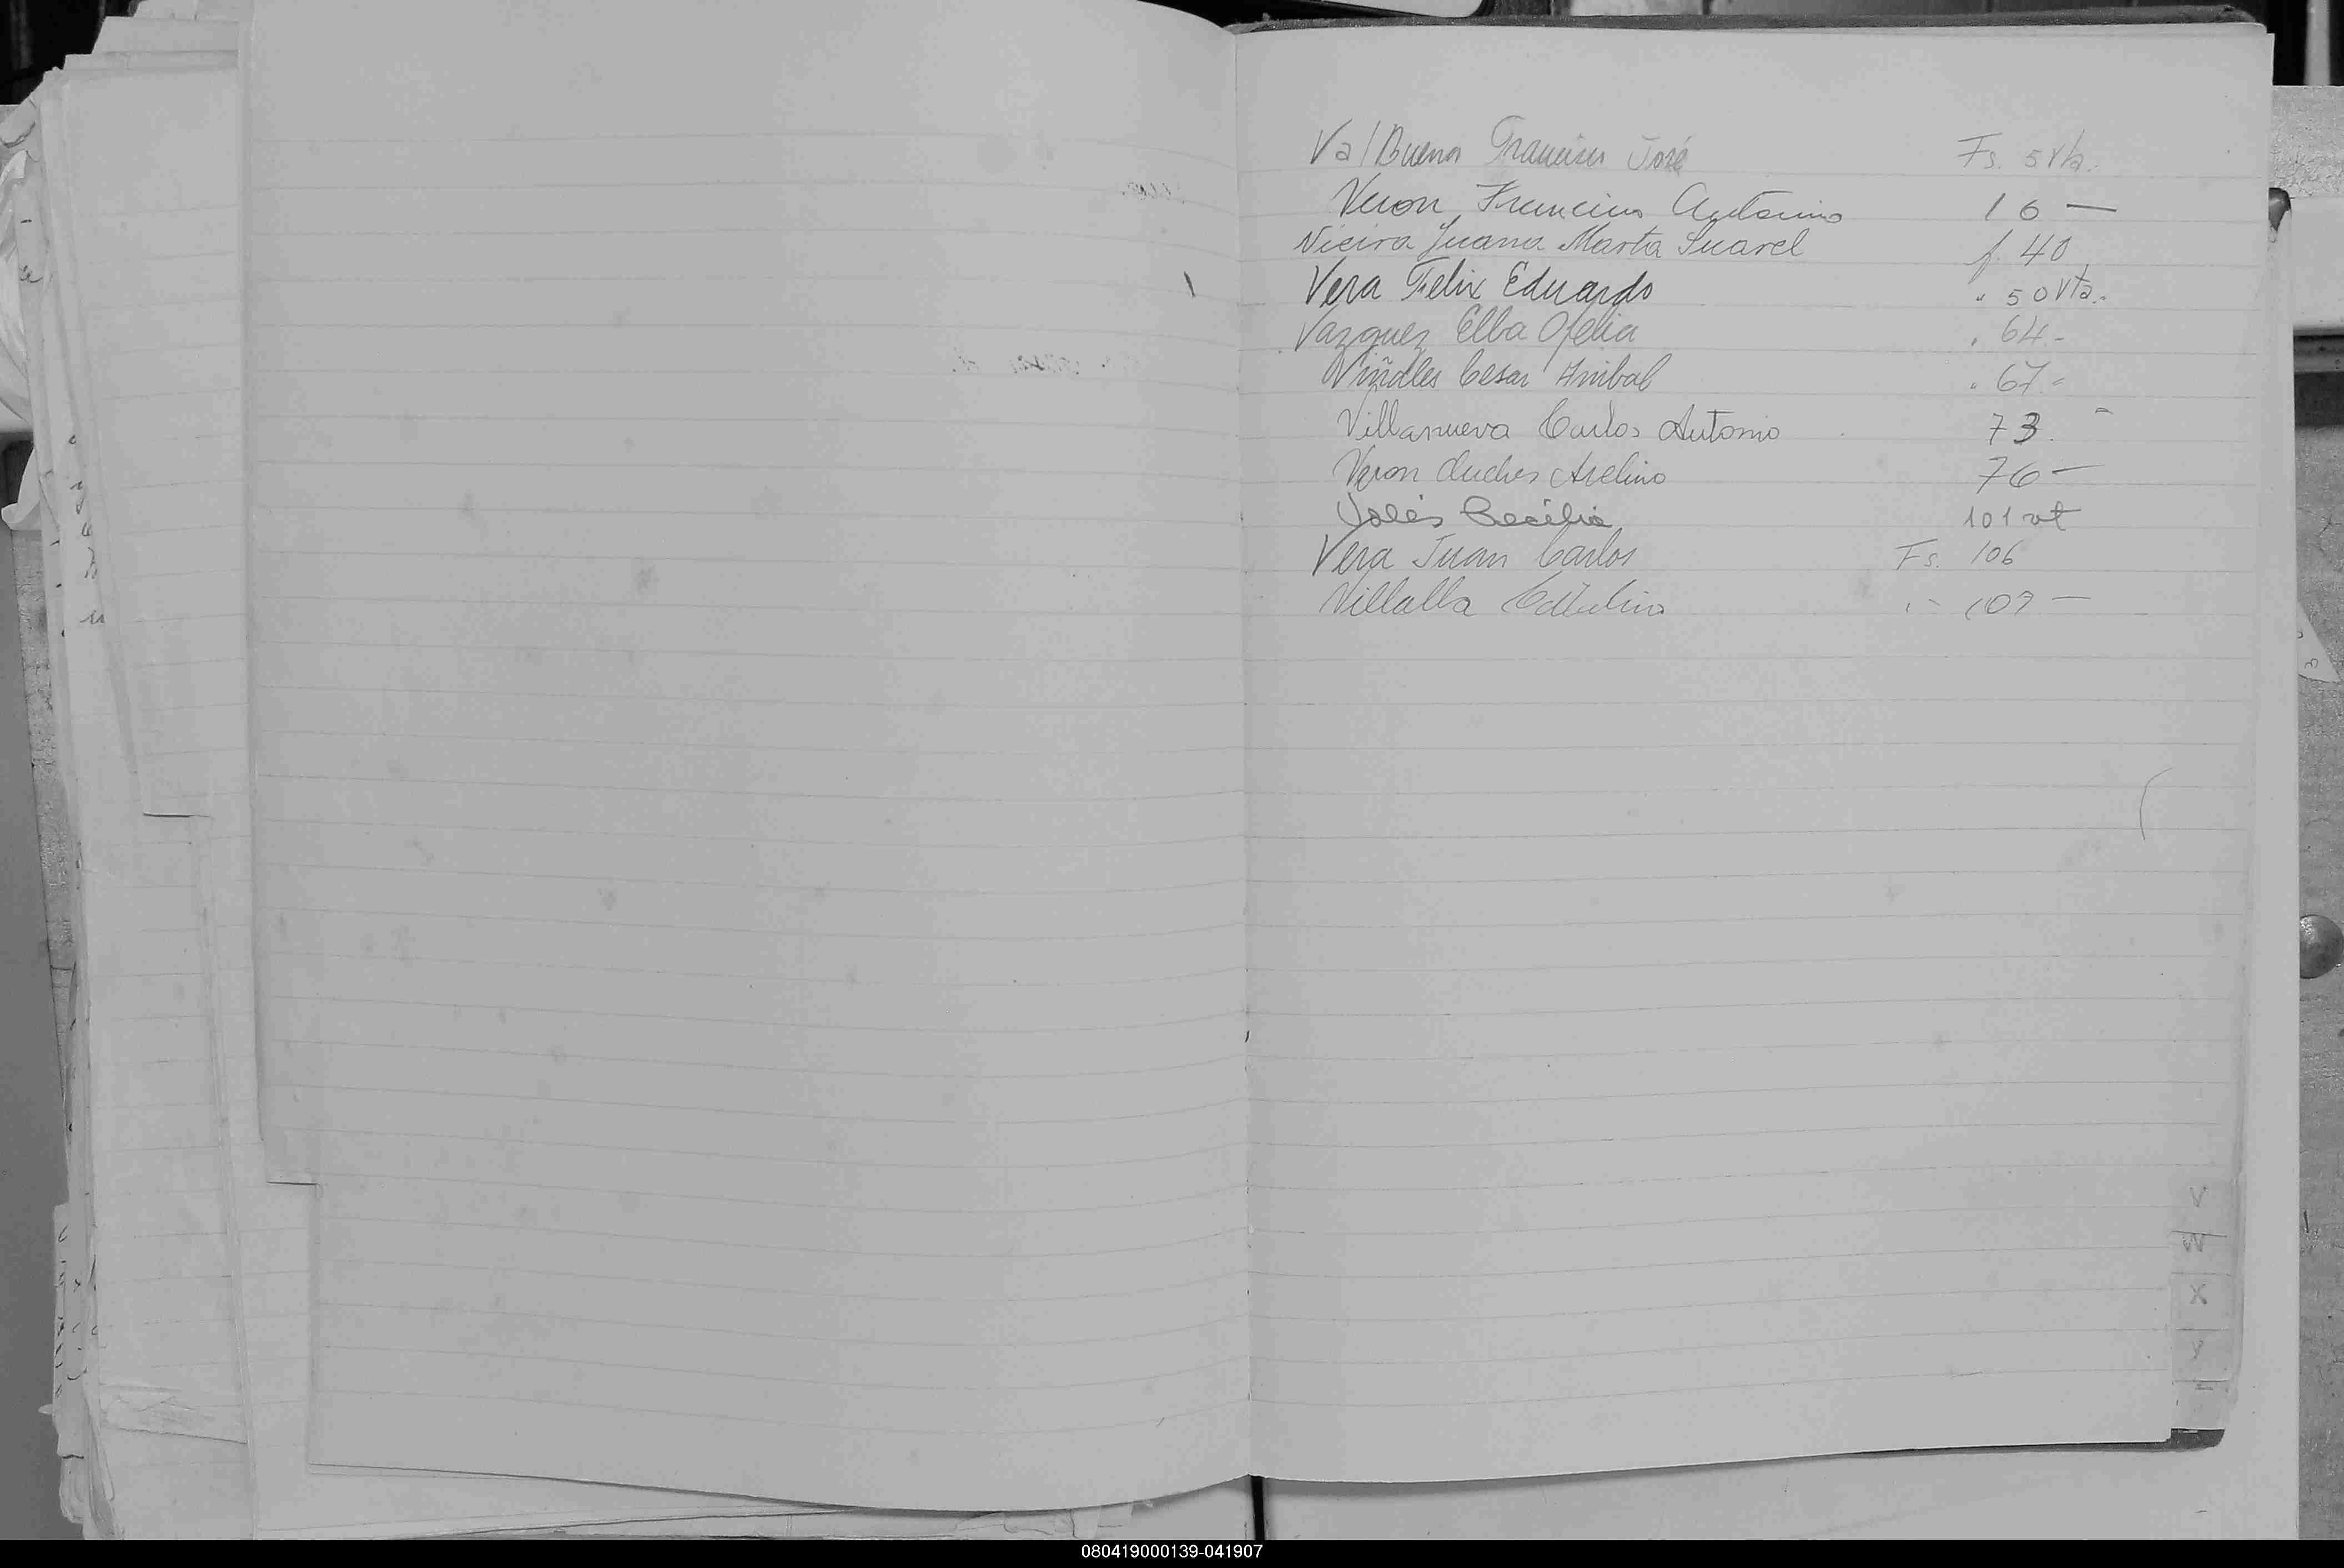 Va/Buena Francisco José Fs. 5 vta.
Veron Francisco Antonino 16 —
Vieira Juana Marta Suarel f. 40
Vera Felix Eduardo " 50 vta.-
Vazquez Elba Ofelia " 64.-
Viñales Cesar Anibal " 67.-
Villanueva Carlos Antonio 73.-
Veron Avelino 76 —
Cecilia 101 vt
Vera Juan Carlos Fs. 106
Villalba 109 —
V
W
X
Y
080419000139-041907